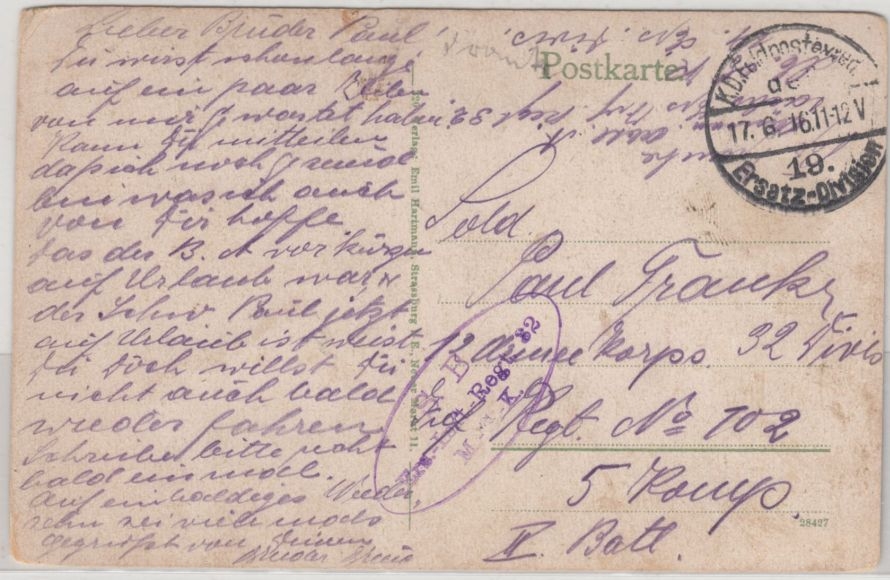 Lieber Bruder Paul!
Du wirst schon lange
auf ein paar Zeilen
von mir gewartet haben
Kann Dir mitteilen
daß ich noch gesund
bin was ich auch
von Dir hoffe
das der B. A vor kurzem
auf Urlaub war u
der Schw Paul jetzt
auf Urlaub ist weist
Du doch willst Du
nicht auch bald
wieder fahren
Schreibe bitte recht
bald einmal.
auf ein baldiges Wieder
sehn sei viel mals
gegrüßt von Deinem
Bruder
Verlag: Emil Hartmann, Strassburg i. E., Neuer Markt 11.
Postkarte
K.D. Feldpostexped.
de
17. 6. 16. 11-12 V
19.
Ersatz-Division
Sold.
Paul Franke
12 Armee Korps. 32 Divis
Inf Regt. No 102
5 Komp.
II. Batl.
S. B.
Regt. 32
M.-G.-K.
28427